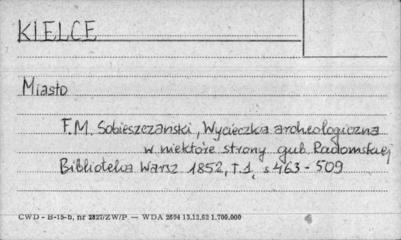 KIELCE
Miasto
F.M. Sobieszczański, Wycieczka archeologiczna
w niektóre strony gub. Radomskiej
Biblioteka Warsz 1852, T.1, s 463-509
CWD - B-15-b, nr 2827/ZW/P — WDA 2604 13.12.62 1.700.000